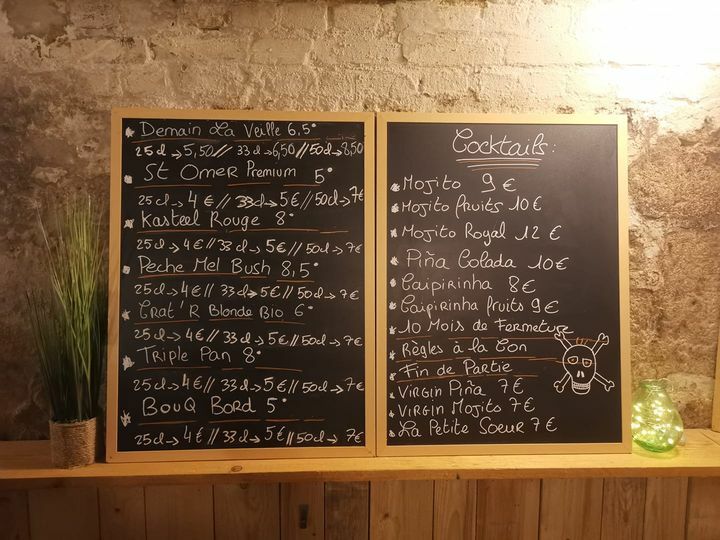 Demain La Veille 6,5°
25cl → 5,50 // 33cl → 6,50 // 50cl → 8,50
St Omer Premium 5°
25cl → 4€ // 33cl → 5€ // 50cl → 7€
Kasteel Rouge 8°
25cl → 4€ // 33cl → 5€ // 50cl → 7€
Peche Mel Bush 8,5°
25cl → 4€ // 33cl → 5€ // 50cl → 7€
Crat'R Blonde Bio 6°
25cl → 4€ // 33cl → 5€ // 50cl → 7€
Triple Pan 8°
25cl → 4€ // 33cl → 5€ // 50cl → 7€
BouQ Bord 5°
25cl → 4€ // 33cl → 5€ // 50cl → 7€
Cocktails :
Mojito 9€
Mojito fruits 10€
Mojito Royal 12€
Piña Colada 10€
Caipirinha 8€
Caipirinha fruits 9€
10 Mois de Fermeture
Règles à la Con
Fin de Partie
Virgin Piña 7€
Virgin Mojito 7€
La Petite Soeur 7€